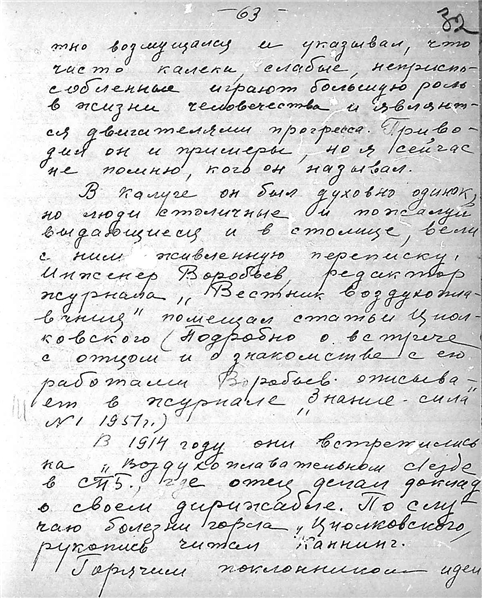 -63-
32
тно возмущался и указывал, что
часто калеки, слабые, неприспо-
собленные играют большую роль
в жизни человечества и являют-
ся двигателями прогресса. Приво-
дил он и примеры, но я сейчас
не помню, кого он называл.
В Калуге он был духовно одинок,
но люди столичные и пожалуй
выдающиеся и в столице, вели
с ним живленную переписку.
Инженер Воробьев, редактор
журнала „Вестник воздухопла-
вания" помещал статьи Циол-
ковского (Подробно о встрече
с отцом и о знакомстве с его
работами Воробьев описыва-
ет в журнале „Знание-сила"
№1 1951г.)
В 1914 году они встретились
на „Воздухоплавательном съезде
в СПБ., где отец делал доклад
о своем дирижабле. По слу-
чаю болезни горла Циолковского,
рукопись читал Каннинг.
Горячим поклонником идеи